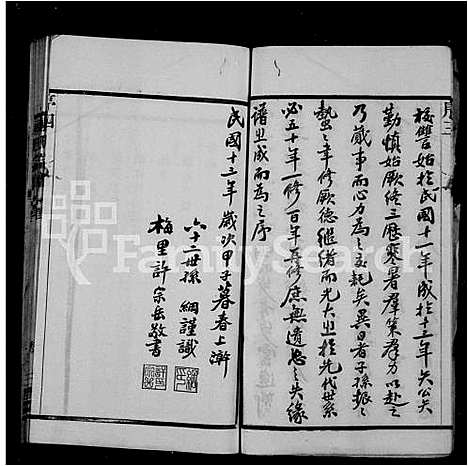 校讐始於民國十一年成於十三年矢公矢
勤慎始厥終三歷寒暑羣策羣力以赴之
乃蕆事而心力為之交耗矣異日者子孫振振
蟄蟄聿修厥德繼緒而光大之於先代世系
必五十年一修百年再修庶無遺忘之失緣
譜之成而為之序
民國十三年歲次甲子暮春上澣
六十二世孫 綱謹識
梅里許宗岳敬書
序三
序四
FamilySearch